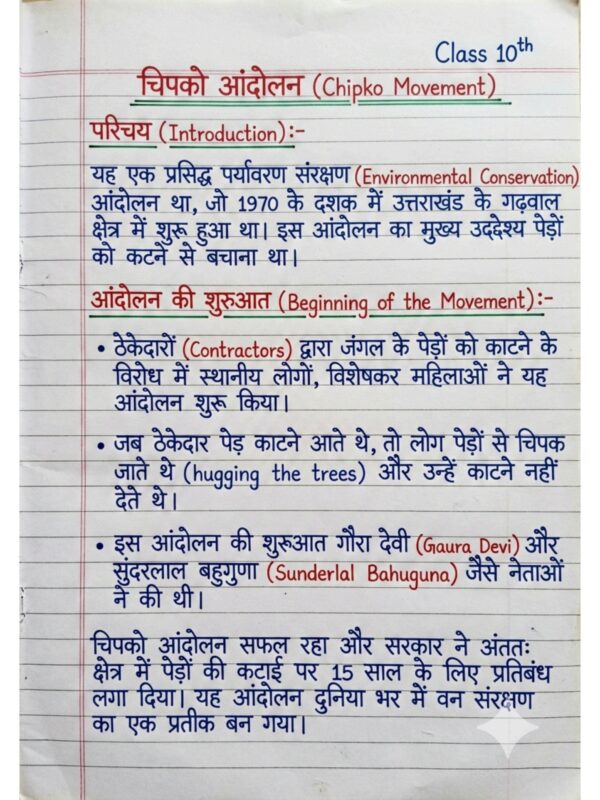 Class 10th
चिपको आंदोलन (Chipko Movement)
परिचय (Introduction):-
यह एक प्रसिद्ध पर्यावरण संरक्षण (Environmental Conservation)
आंदोलन था, जो 1970 के दशक में उत्तराखंड के गढ़वाल
क्षेत्र में शुरू हुआ था। इस आंदोलन का मुख्य उद्देश्य पेड़ों
को कटने से बचाना था।
आंदोलन की शुरुआत (Beginning of the Movement):-
• ठेकेदारों (Contractors) द्वारा जंगल के पेड़ों को काटने के
विरोध में स्थानीय लोगों, विशेषकर महिलाओं ने यह
आंदोलन शुरू किया।
• जब ठेकेदार पेड़ काटने आते थे, तो लोग पेड़ों से चिपक
जाते थे (hugging the trees) और उन्हें काटने नहीं
देते थे।
• इस आंदोलन की शुरूआत गौरा देवी (Gaura Devi) और
सुंदरलाल बहुगुणा (Sunderlal Bahuguna) जैसे नेताओं
ने की थी।
चिपको आंदोलन सफल रहा और सरकार ने अंततः
क्षेत्र में पेड़ों की कटाई पर 15 साल के लिए प्रतिबंध
लगा दिया। यह आंदोलन दुनिया भर में वन संरक्षण
का एक प्रतीक बन गया।